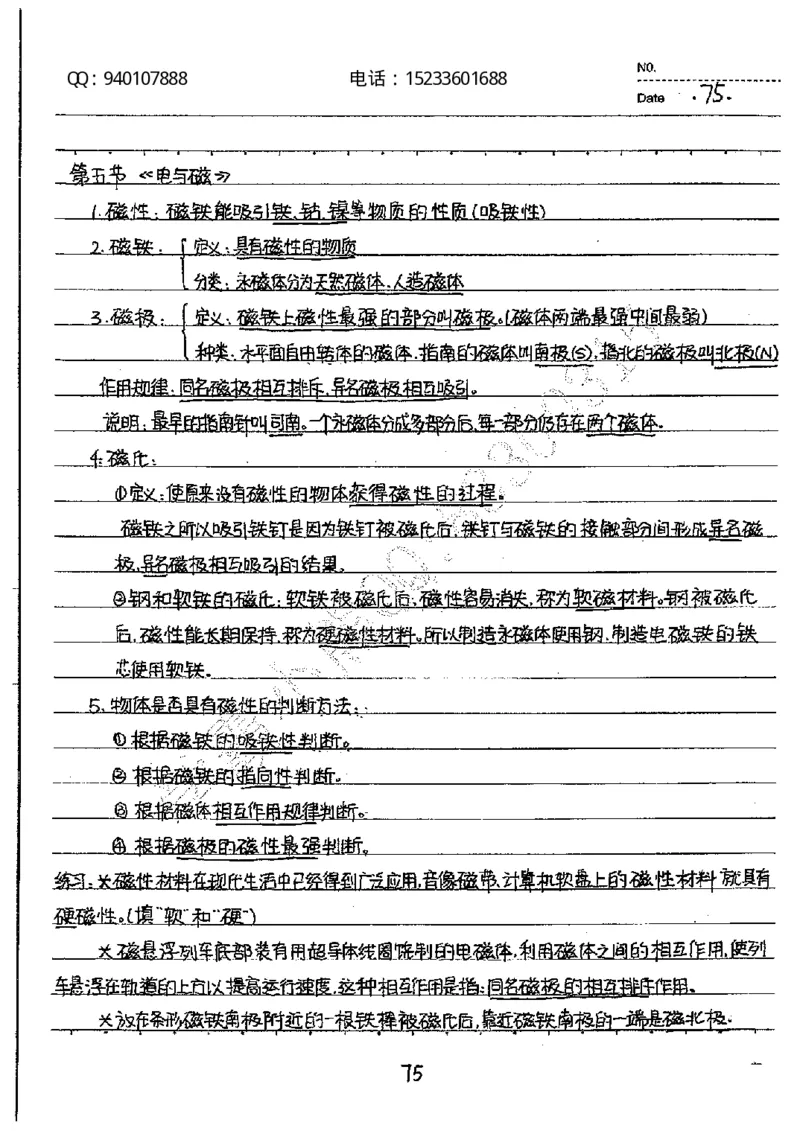 QQ：940107888 电话：15233601688 NO.
Date .75.
第五节 《电与磁》
1.磁性：磁铁能吸引铁、钴、镍等物质的性质(吸铁性)
2.磁铁：定义：具有磁性的物质
分类：永磁体分为天然磁体、人造磁体
3.磁极：定义：磁铁上磁性最强的部分叫磁极。(磁体两端最强中间最弱)
种类：水平面自由转体的磁体，指南的磁体叫南极(S)，指北的磁极叫北极(N)
作用规律：同名磁极相互排斥，异名磁极相互吸引。
说明：最早的指南针叫司南。一个永磁体分成多部分后，每一部分仍存在两个磁体。
4.磁化：
①定义：使原来没有磁性的物体获得磁性的过程。
磁铁之所以吸引铁钉是因为铁钉被磁化后，铁钉与磁铁的接触部分间形成异名磁
极，异名磁极相互吸引的结果。
②钢和软铁的磁化：软铁被磁化后，磁性容易消失，称为软磁材料。钢被磁化
后，磁性能长期保持，称为硬磁性材料。所以制造永磁体使用钢，制造电磁铁的铁
芯使用软铁。
5、物体是否具有磁性的判断方法：
①根据磁铁的吸铁性判断。
②根据磁铁的指向性判断。
③根据磁体相互作用规律判断。
④根据磁极的磁性最强判断。
练习：*磁性材料在现代生活中已经得到广泛应用，音像磁带、计算机软盘上的磁性材料就具有
硬磁性。(填"软"和"硬")
*磁悬浮列车底部装有用超导体线圈饶制的电磁体，利用磁体之间的相互作用，使列
车悬浮在轨道的上方以提高运行速度，这种相互作用是指：同名磁极的相互排斥作用。
*放在条形磁铁南极附近的一根铁棒被磁化后，靠近磁铁南极的一端是磁北极。
75